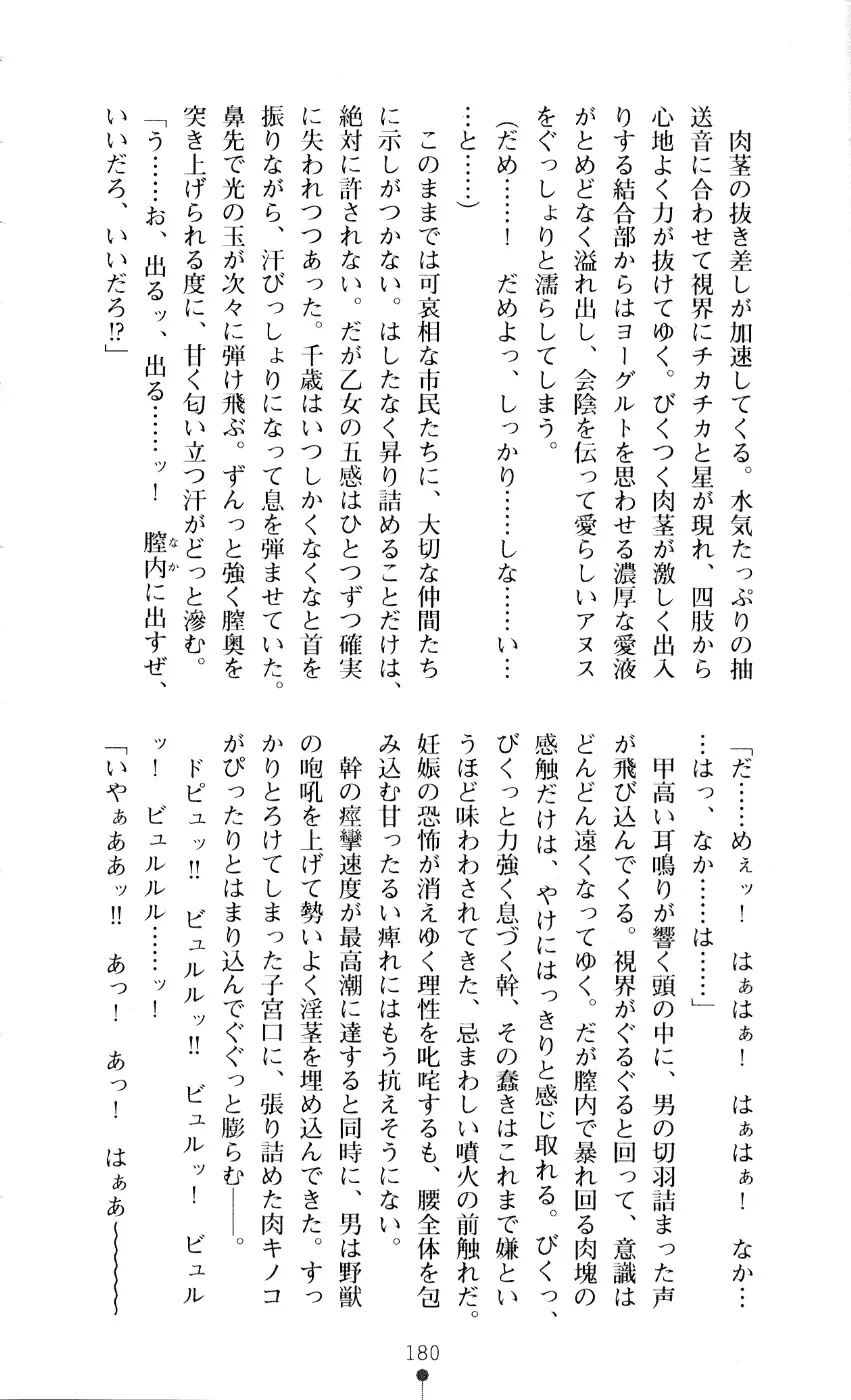 肉茎の抜き差しが加速してくる。水気たっぷりの抽
送音に合わせて視界にチカチカと星が現れ、四肢から
心地よく力が抜けてゆく。びくつく肉茎が激しく出入
りする結合部からはヨーグルトを思わせる濃厚な愛液
がとめどなく溢れ出し、会陰を伝って愛らしいアヌス
をぐっしょりと濡らしてしまう。
（だめ……！　だめよっ、しっかり……しな……い…
…と……）
　このままでは可哀相な市民たちに、大切な仲間たち
に示しがつかない。はしたなく昇り詰めることだけは、
絶対に許されない。だが乙女の五感はひとつずつ確実
に失われつつあった。千歳はいつしかくなくなと首を
振りながら、汗びっしょりになって息を弾ませていた。
鼻先で光の玉が次々に弾け飛ぶ。ずんっと強く膣奥を
突き上げられる度に、甘く匂い立つ汗がどっと滲む。
「う……お、出るッ、出る……ッ！　膣内（なか）に出すぜ、
いいだろ、いいだろ!?」
「だ……めぇッ！　はぁはぁ！　はぁはぁ！　なか…
…はっ、なか……は……」
　甲高い耳鳴りが響く頭の中に、男の切羽詰まった声
が飛び込んでくる。視界がぐるぐると回って、意識は
どんどん遠くなってゆく。だが膣内で暴れ回る肉塊の
感触だけは、やけにはっきりと感じ取れる。びくっ、
びくっと力強く息づく幹、その蠢きはこれまで嫌とい
うほど味わわされてきた、忌まわしい噴火の前触れだ。
妊娠の恐怖が消えゆく理性を叱咤するも、腰全体を包
み込む甘ったるい痺れにはもう抗えそうにない。
　幹の痙攣速度が最高潮に達すると同時に、男は野獣
の咆吼を上げて勢いよく淫茎を埋め込んできた。すっ
かりとろけてしまった子宮口に、張り詰めた肉キノコ
がぴったりとはまり込んでぐぐっと膨らむ――。
　ドピュッ!!　ビュルルッ!!　ビュルッ！　ビュル
ッ！　ビュルルル……ッ！
「いやぁああッ!!　あっ！　あっ！　はぁあ～～～～
180